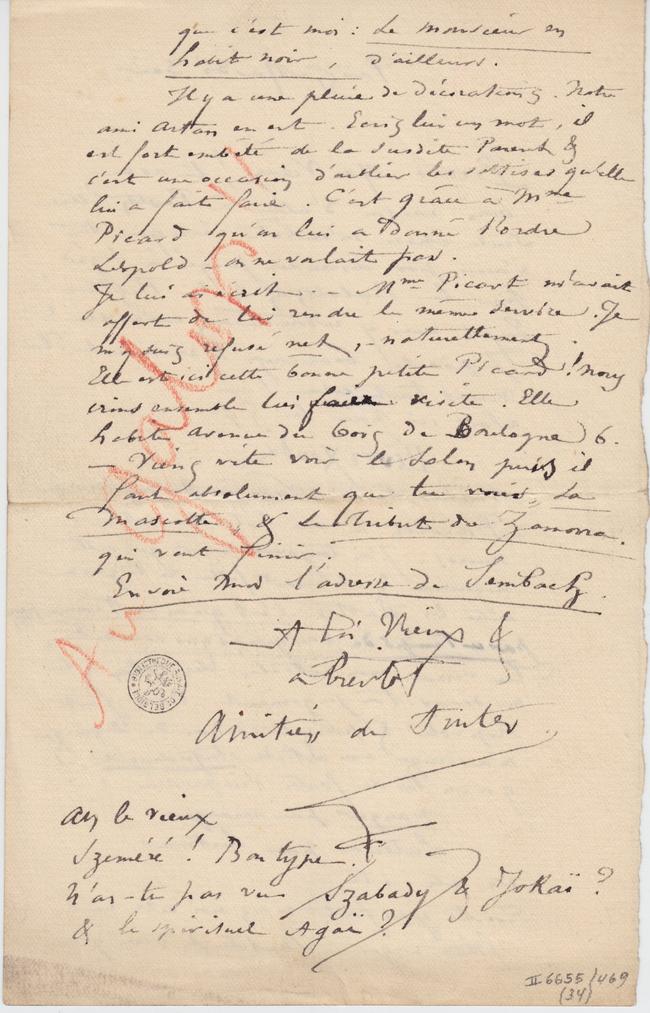 que c'est moi : Le monsieur en
habit noir, d'ailleurs.
Il y a une pluie de décorations. Notre
ami Artan en est. Ecris lui un mot, il
est fort embêté de la susdite Parent &
c'est une occasion d'oublier les sottises qu'elle
lui a fait faire. C'est grâce à Mme
Picard qu'on lui a donné l'ordre
Léopold - on ne voulait pas.
Je lui ai écrit. - Mme Picard m'avait
offert de lui rendre le même service. Je
m'y suis refusé net, - naturellement.
Elle est ici cette bonne petite Picard ! nous
irons ensemble lui faire visite. Elle
habite avenue du Bois de Boulogne 6.
- Viens vite voir le Salon puis il
faut absolument que tu voies, La
Mascotte, & Le Tribut de Zamora.
qui vont finir.
Envoie moi l'adresse de Sembach.
A toi Vieux &
à bientôt
Amitiés de
Ah le vieux
Szeméré ! Bon type.
N'as-tu pas vu Szabady & Jokaï ?
& le spirituel Agaï ?
II 6655/469
(34)